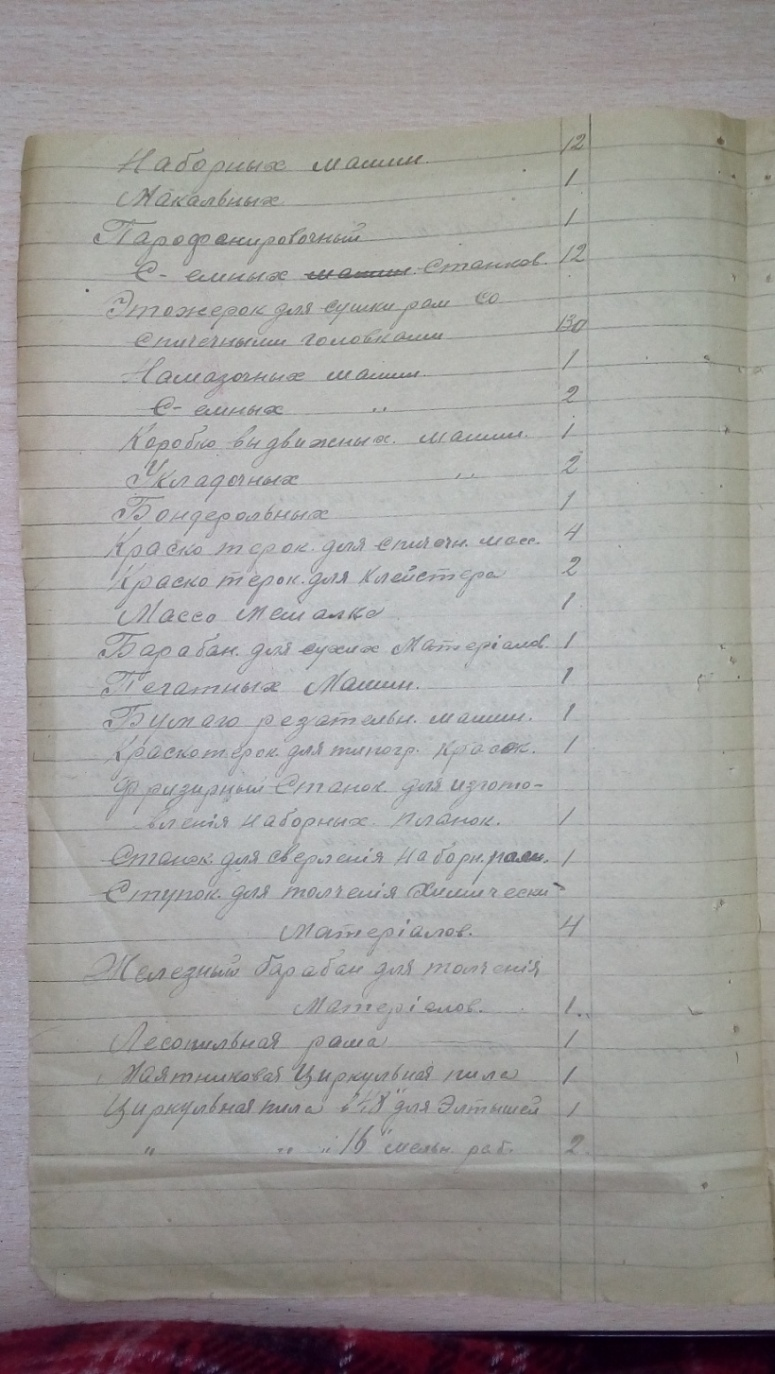 Наборных машин. 12
Макальных 1
Парофанировочный 1
С-емных машин. Станков. 12
Этожерок для сушки рам со
спичечными головками 130
Намазочных машин. 1
С-емных " 2
Коробко выдвижных. машин. 1
Укладочных " 2
Бондерольных 1
Краско терок. для спичечн. масс. 4
Краско терок. для Клейстера 2
Массо Мешалка 1
Барабан. для сухих Матеріалов. 1
Печатных Машин. 1
Бумаго резательн. машин. 1
Краскотерок. для типогр. Красок. 1
Фризирный Станок для изгото-
вленія наборных планок. 1
Станок для сверленія Наборн. 1
Ступок для толченія Химически
Матеріалов. 4
Железный барабан для толченія
Матеріалов. 1
Лесопильная рама 1
Маятниковая Циркульная пила 1
Циркульная пила 48" для Элтышей 1
" " " 16" мельн. раб. 2